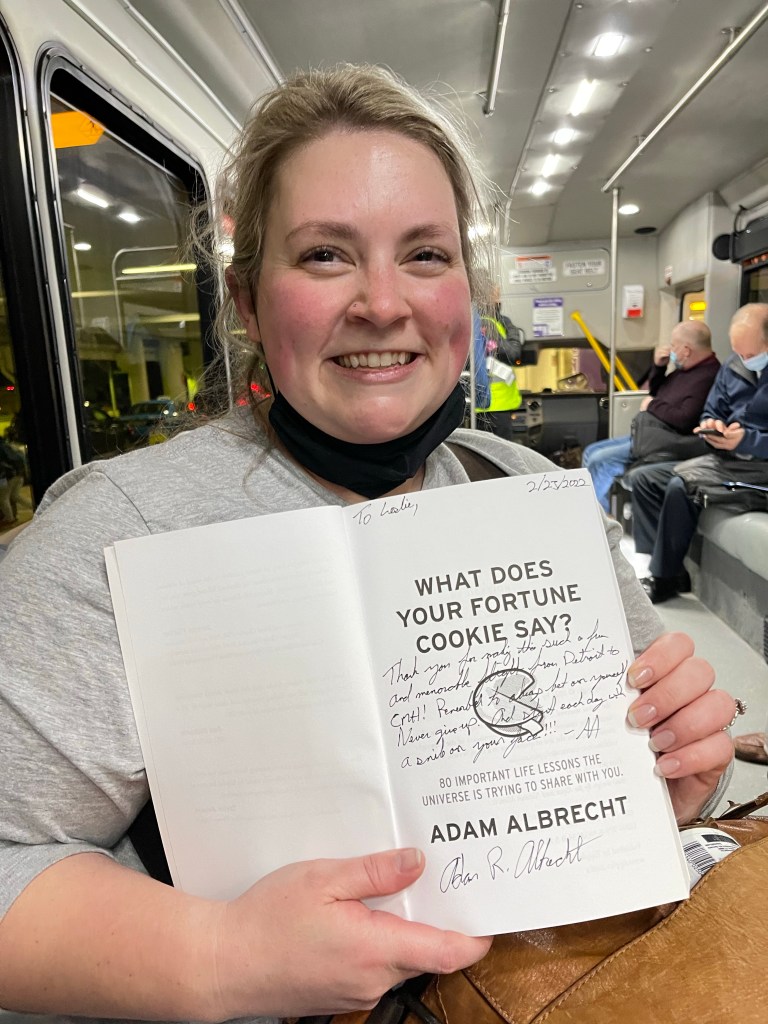 FASTEN YOUR
SEAT BELT
To Leslie,
2/23/2022
WHAT DOES
YOUR FORTUNE
COOKIE SAY?
Thank you for making this such a fun
and memorable from Detroit to
CMH! Remember to always bet on yourself
Never give up. And start each day with
a smile on your face!!! - AA
80 IMPORTANT LIFE LESSONS THE
UNIVERSE IS TRYING TO SHARE WITH YOU.
ADAM ALBRECHT
Adam R. Albrecht